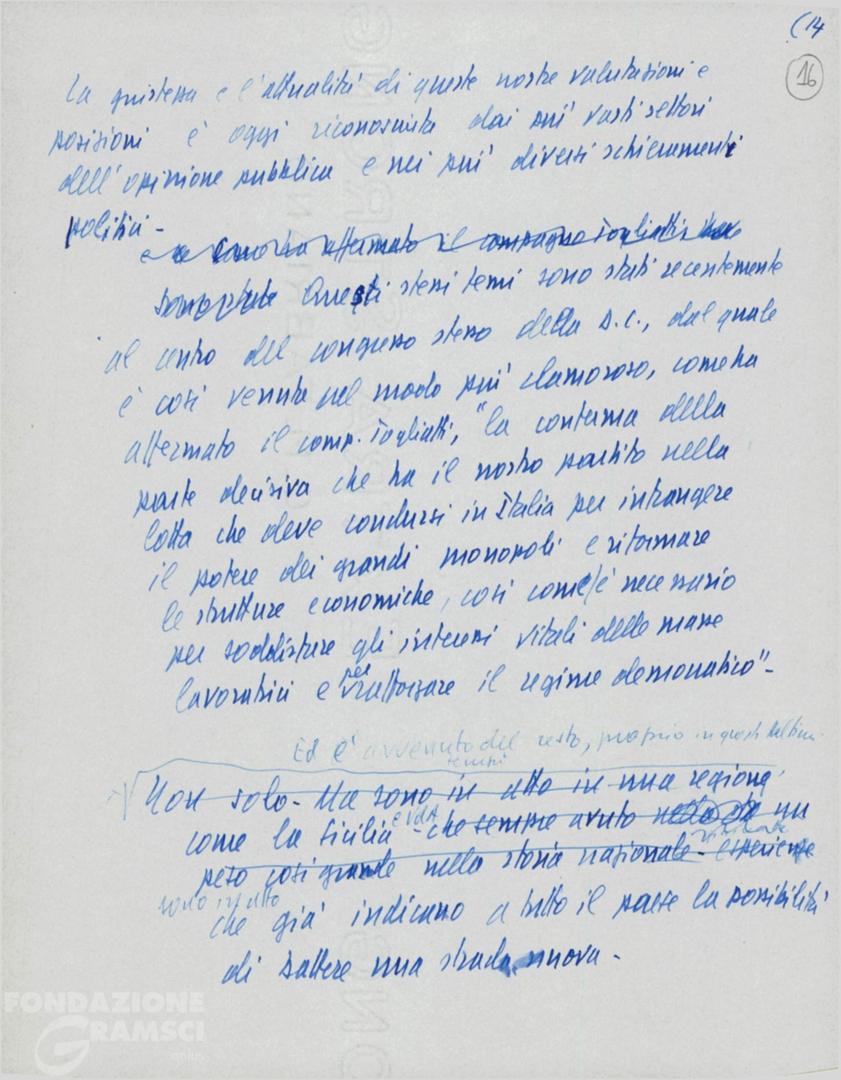 (14
16
La giustezza e l'attualità di queste nostre valutazioni e
posizioni è oggi riconosciuta dai più vasti settori
dell'opinione pubblica e nei più diversi schieramenti
politici -
e come ha affermato il compagno Togliatti
sono state Questi stessi temi sono stati recentemente
al centro del congresso stesso della D.C., dal quale
è così venuta nel modo più clamoroso, come ha
affermato il comp. Togliatti, "la conferma della
parte decisiva che ha il nostro partito nella
lotta che deve condursi in Italia per infrangere
il potere dei grandi monopoli e riformare
le strutture economiche, così com'è necessario
per soddisfare gli interessi vitali delle masse
lavoratrici e per rafforzare il regime democratico" -
Ed è avvenuto del resto, proprio in questi ultimi
tempi
Non solo - Ma sono in atto in una regione
come la Sicilia e VdA - che sempre avuto un
peso così grande nella storia nazionale - esperienze
sono in atto
che già indicano a tutto il paese la possibilità
di battere una strada nuova -
FONDAZIONE
GRAMSCI
onlus